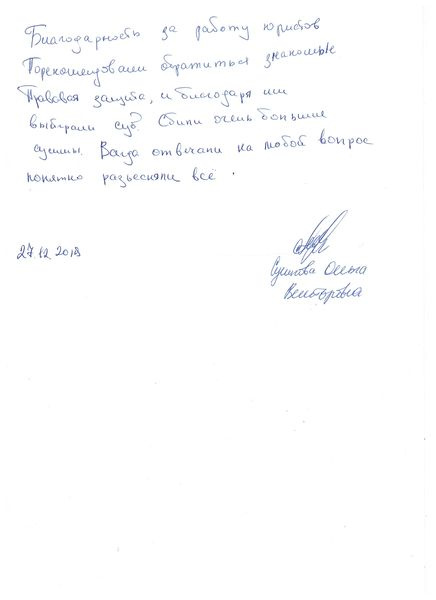 Благодарность за работу юристов
Порекомендовали обратиться знакомые
Правовая защита, и благодаря им
выиграли суд. Сбили очень большие
суммы. Всегда отвечали на любой вопрос
понятно разъесняли всё.
27.12.2018
Ольга
Викторовна